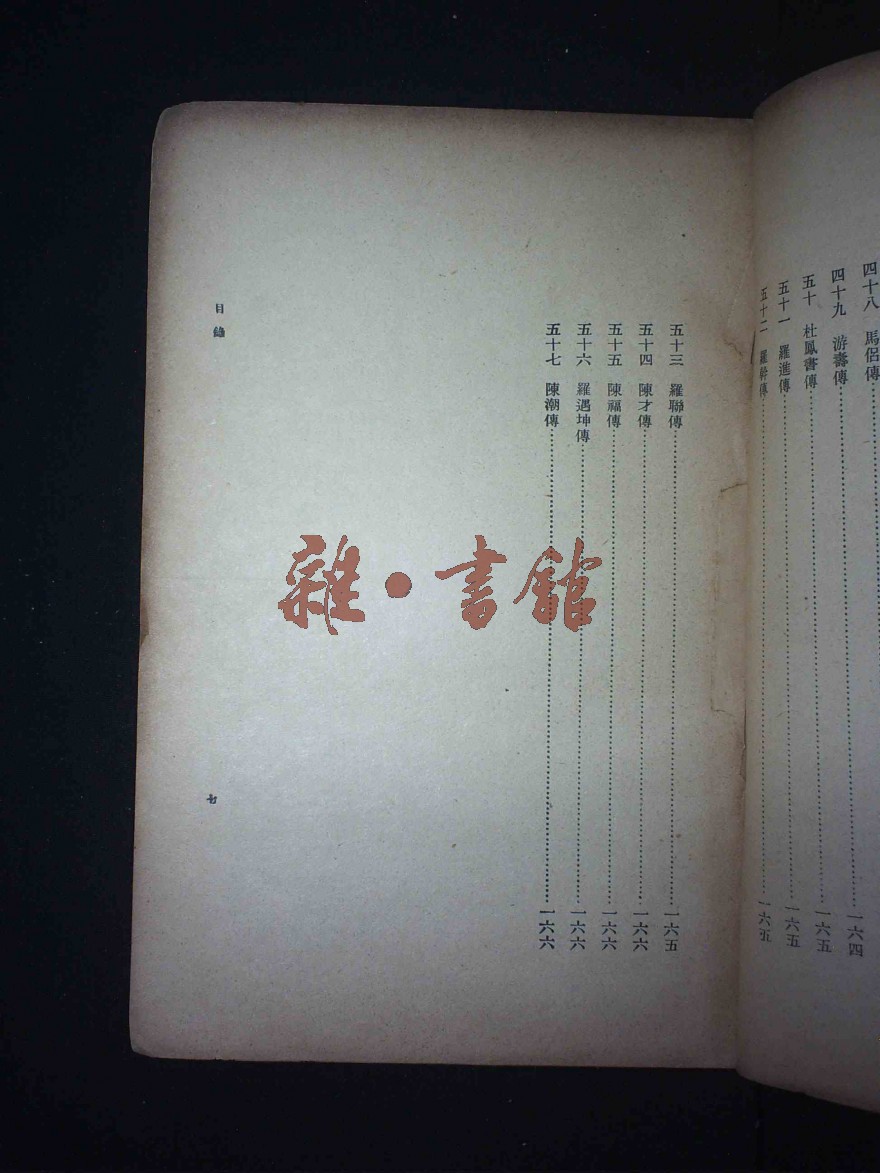 四十八　馬侶傳……一六四
四十九　游壽傳……一六五
五十　杜鳳書傳……一六五
五十一　羅進傳……一六五
五十二　羅幹傳……一六五
五十三　羅聯傳……一六五
五十四　陳才傳……一六六
五十五　陳福傳……一六六
五十六　羅遇坤傳……一六六
五十七　陳潮傳……一六六
目錄
七
雜·書館